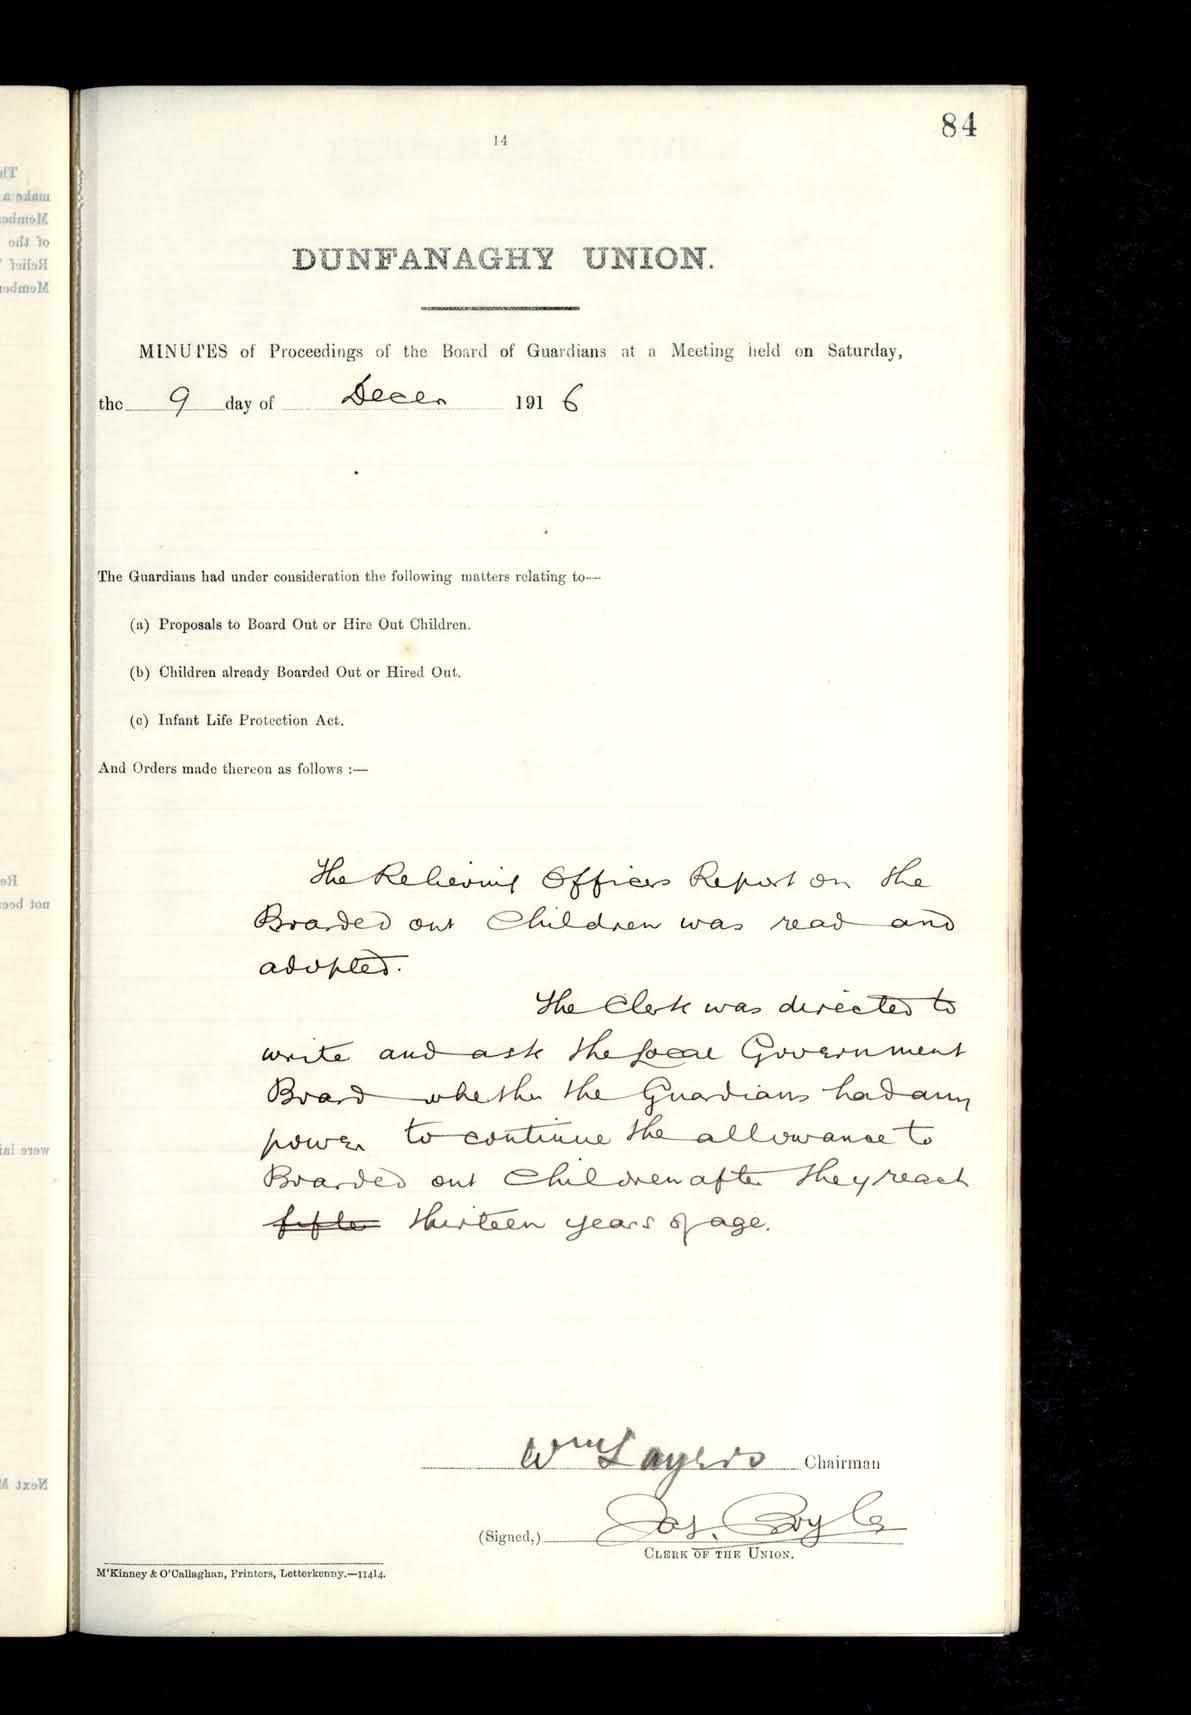 84
14
DUNFANAGHY UNION.
MINUTES of Proceedings of the Board of Guardians at a Meeting held on Saturday,
the 9 day of Decer 1916
The Guardians had under consideration the following matters relating to—
(a) Proposals to Board Out or Hire Out Children.
(b) Children already Boarded Out or Hired Out.
(c) Infant Life Protection Act.
And Orders made thereon as follows :—
The Relieving Officers Report on the
Boarded out Children was read and
adopted.
The Clerk was directed to
write and ask the Local Government
Board whether the Guardians had any
power to continue the allowance to
Boarded out Children after they reach
thirteen years of age.
Wm Chairman
(Signed,) Jas. Boyle
CLERK OF THE UNION.
M'Kinney & O'Callaghan, Printers, Letterkenny.—11414.